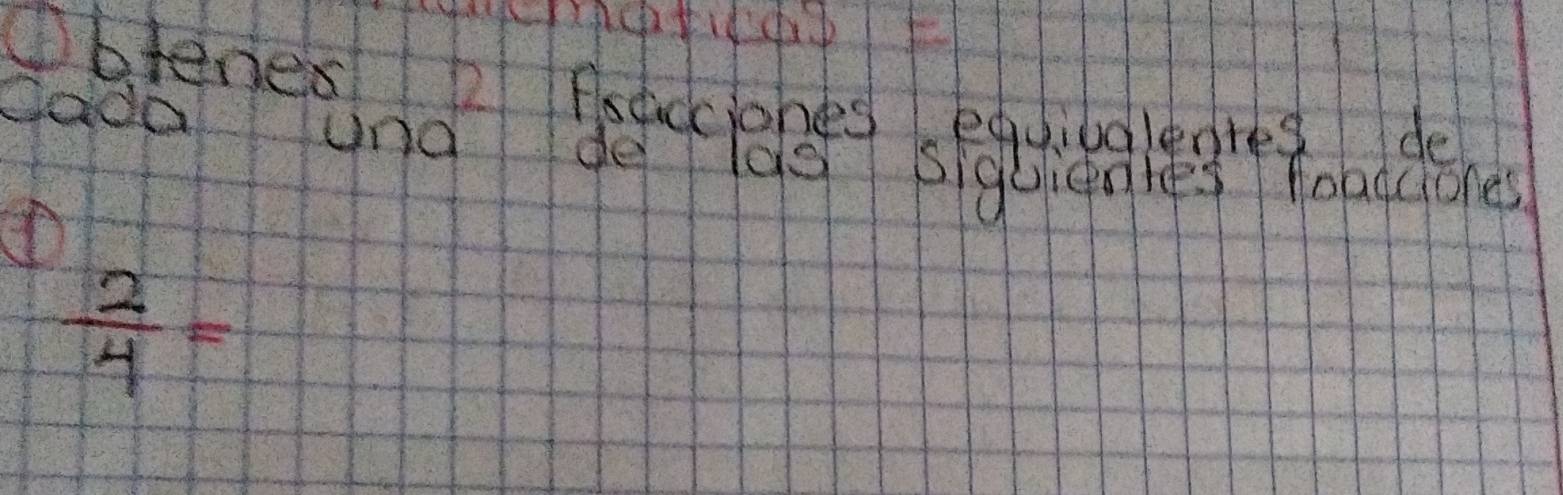 Obtener 2 fracciones equivalentes de
cada una de las siguientes fracciones
①
2
4 =